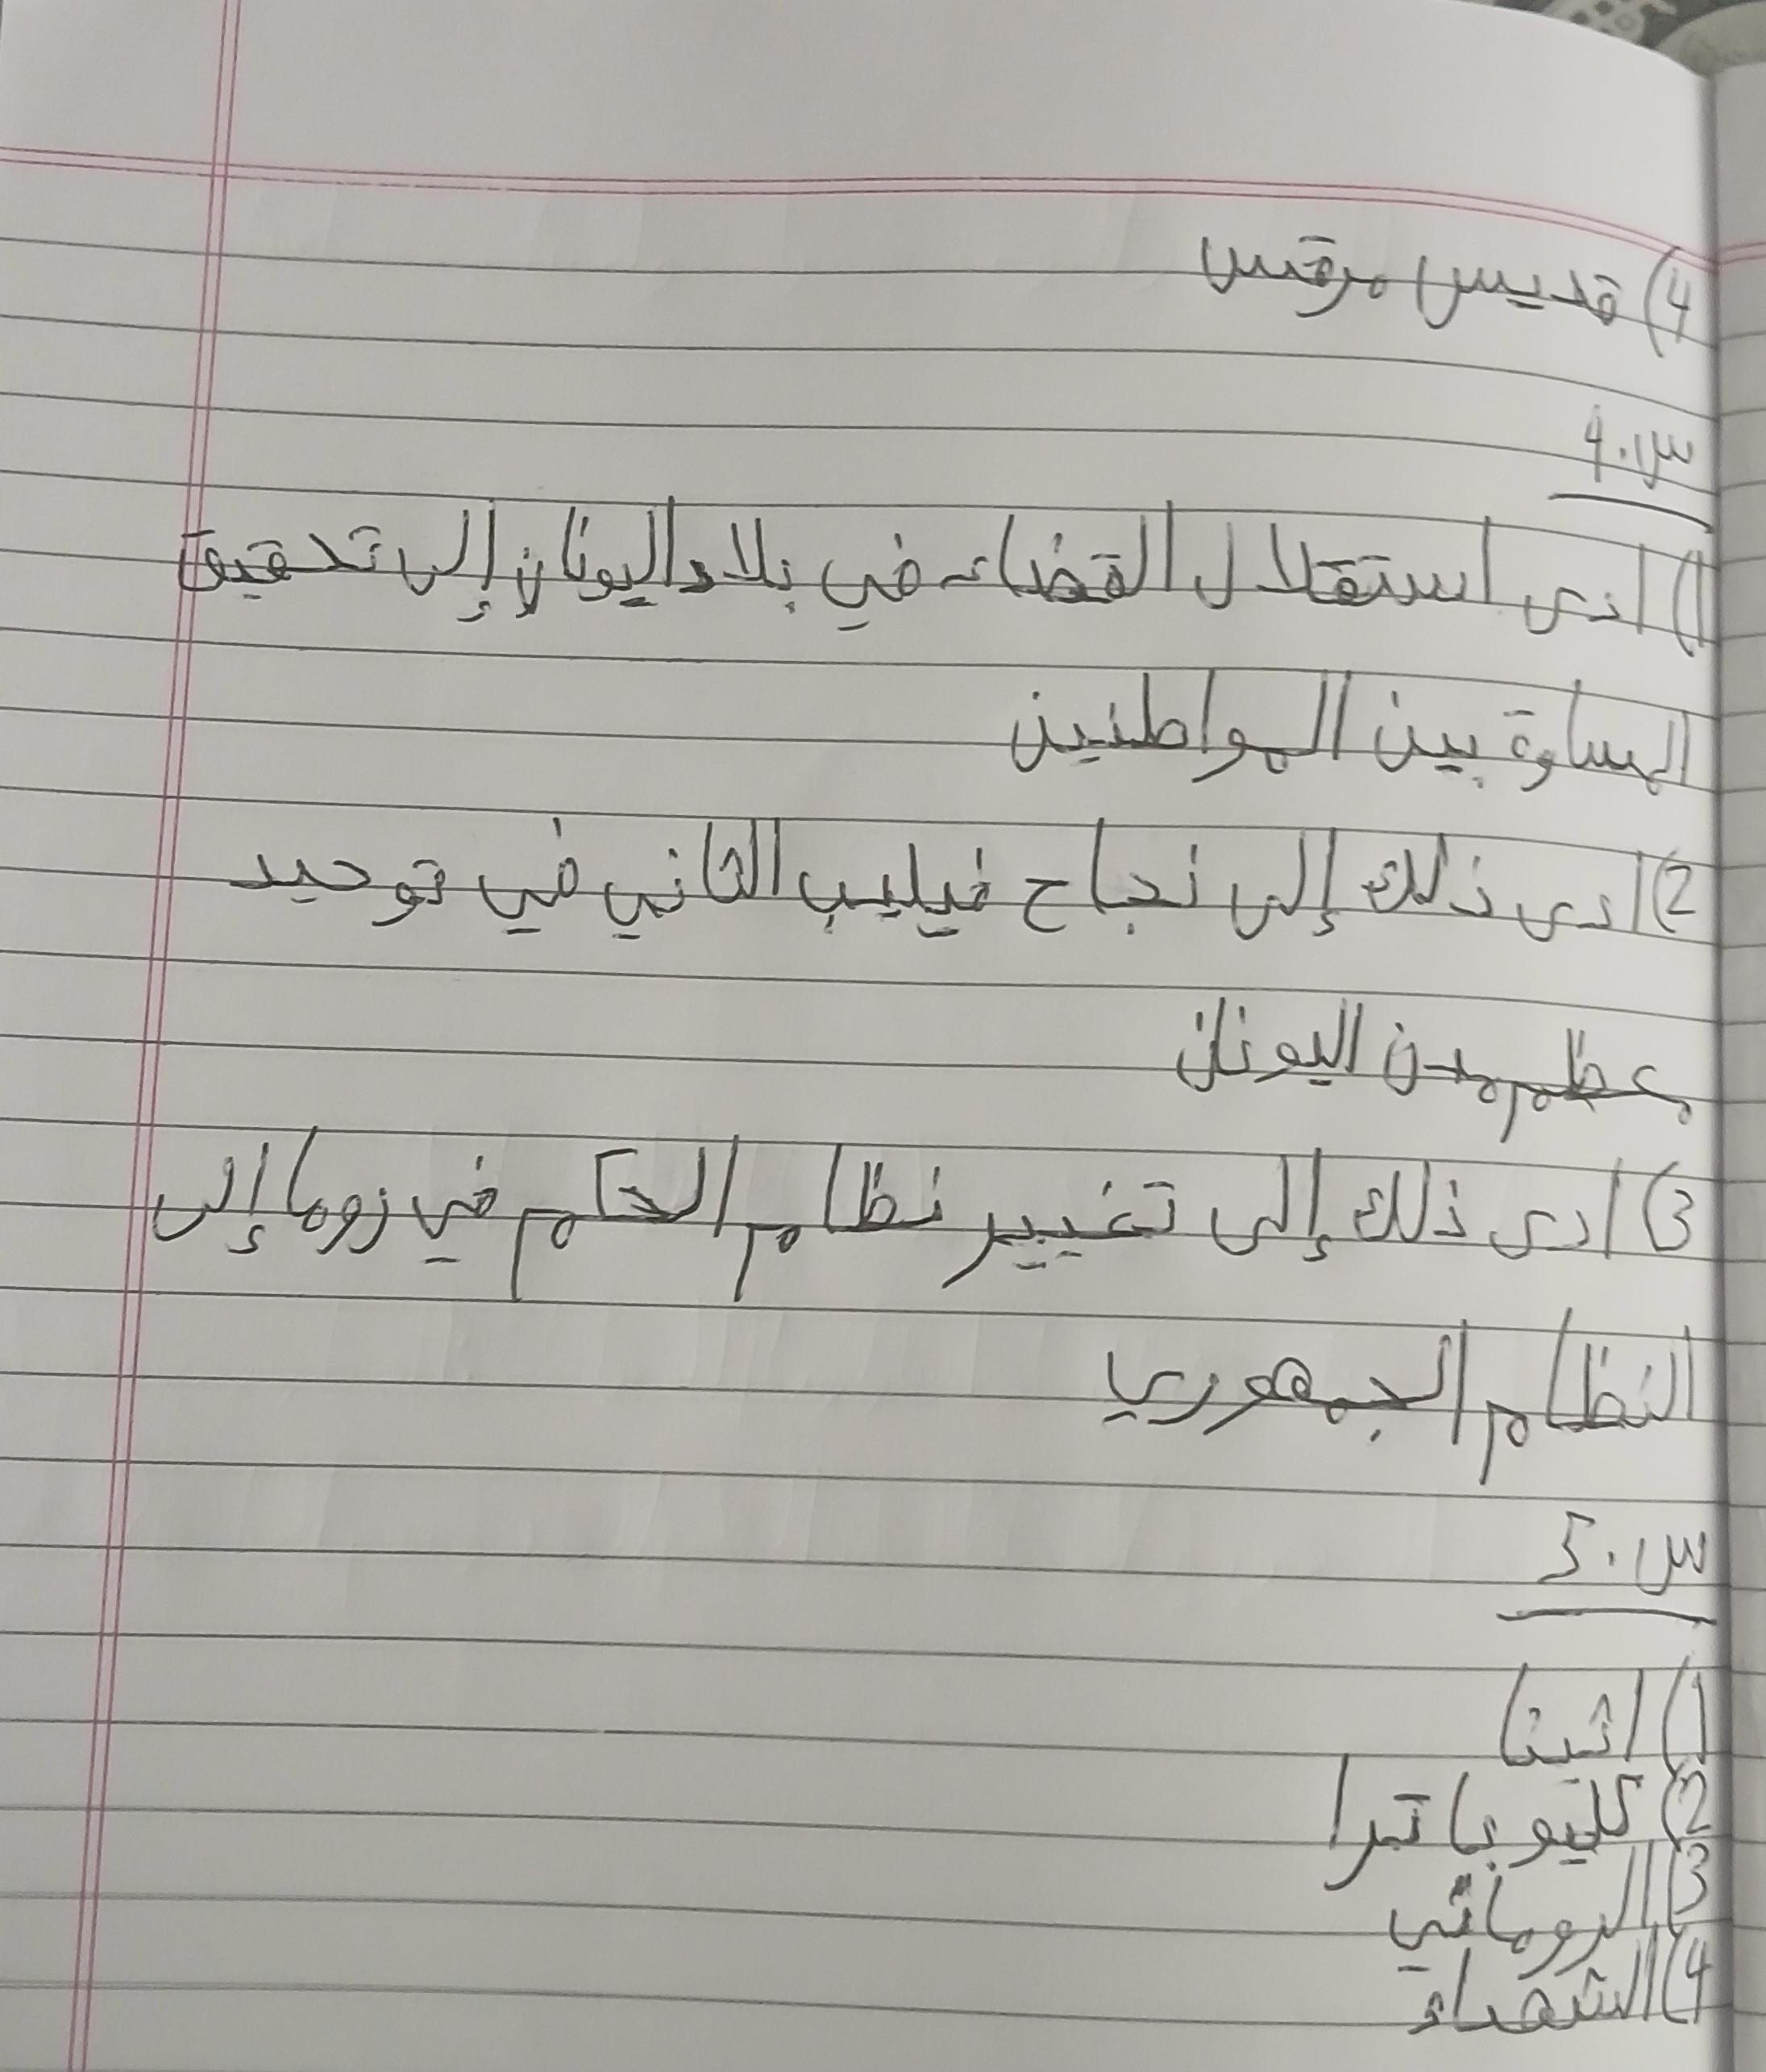 4) قديس مرقس
س.4
1) ادى استقلال القضاء في بلاد اليونان إلى تحقيق
المساوة بين المواطنين
2) ادى ذلك إلى نجاح فيليب الثاني في توحيد
معظم مدن اليونان
3) ادى ذلك إلى تغيير نظام الحكم في روما إلى
النظام الجمهوري
س.5
1) اثينا
2) كليوباترا
3) الروماني
4) الشهداء